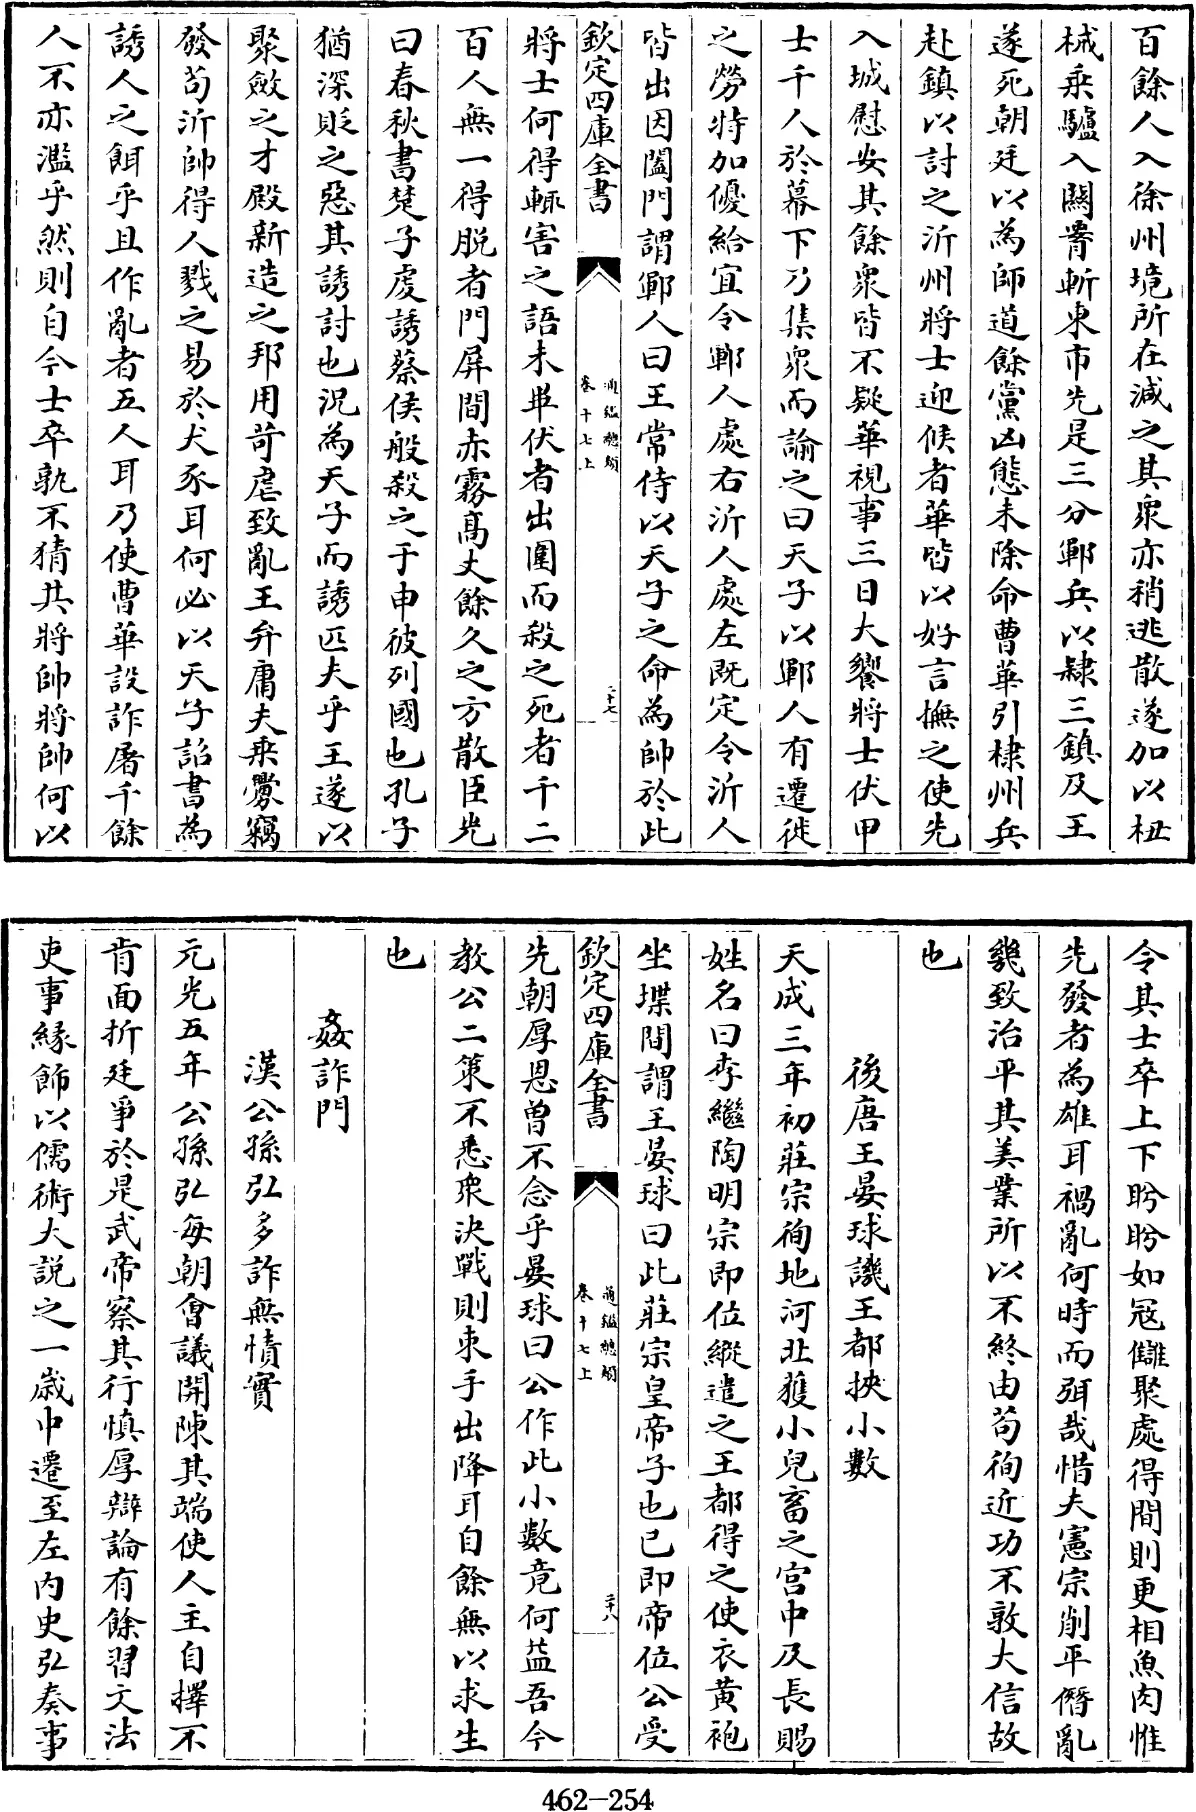 百餘人入徐州境所在減之其衆亦稍逃散遂加以杻
械乗驢入關胥斬東市先是三分鄆兵以𨽻三鎮及王
遂死朝廷以為師道餘黨凶態未除命曹華引棣州兵
赴鎮以討之沂州將士迎候者華皆以好言撫之使先
入城慰安其餘衆皆不疑華視事三日大饗將士伏甲
士千人於幕下乃集衆而諭之曰天子以鄆人有遷徙
之勞特加優給宜令鄆人處右沂人處左既定令沂人
皆出因闔門謂鄆人曰王常侍以天子之命為帥於此
欽定四庫全書
通鑑總類
卷十七上
二十七
將士何得輒害之語未畢伏者出圍而殺之死者千二
百人無一得脱者門屏間赤霧髙丈餘久之方散臣光
曰春秋書楚子䖍誘蔡侯般殺之于申彼列國也孔子
猶深貶之惡其誘討也況為天子而誘匹夫乎王遂以
聚斂之才殿新造之邦用苛虐致亂王弁庸夫乗釁竊
發茍沂帥得人戮之易於犬豕耳何必以天子詔書為
誘人之餌乎且作亂者五人耳乃使曹華設詐屠千餘
人不亦濫乎然則自今士卒孰不猜其將帥將帥何以
令其士卒上下盻盻如冦讎聚處得間則更相魚肉惟
先發者為雄耳禍亂何時而弭哉惜夫憲宗削平僭亂
幾致治平其美業所以不終由茍徇近功不敦大信故
也
後唐王晏球譏王都挾小數
天成三年初莊宗徇地河北獲小兒畜之宫中及長賜
姓名曰李繼陶明宗即位縱遣之王都得之使衣黄袍
坐堞間謂王晏球曰此莊宗皇帝子也已即帝位公受
欽定四庫全書
通鑑總類
卷十七上
二十八
先朝厚恩曽不念乎晏球曰公作此小數竟何益吾今
教公二策不悉衆決戰則束手出降耳自餘無以求生
也
姦詐門
漢公孫弘多詐無情實
元光五年公孫弘每朝會議開陳其端使人主自擇不
肯面折廷爭於是武帝察其行慎厚辯論有餘習文法
吏事緣飾以儒術大説之一嵗中遷至左内史弘奏事
462-254